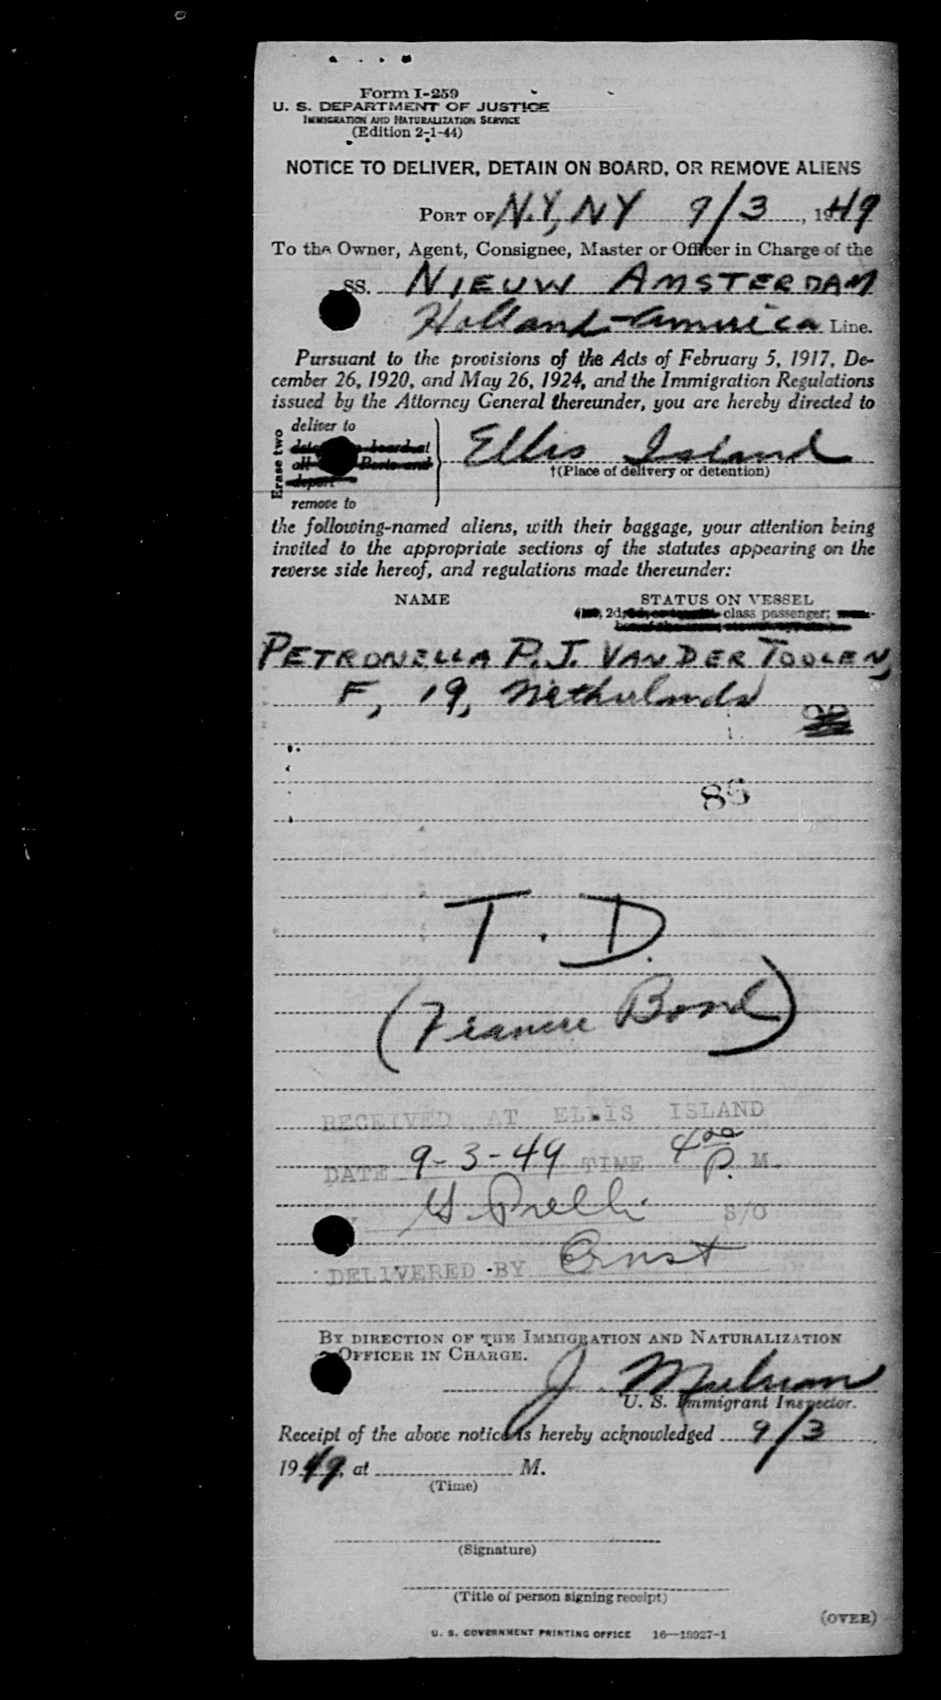 Form I-259
U. S. DEPARTMENT OF JUSTICE
IMMIGRATION AND NATURALIZATION SERVICE
(Edition 2-1-44)
NOTICE TO DELIVER, DETAIN ON BOARD, OR REMOVE ALIENS
PORT OF N.Y., NY 9/3, 1949
To the Owner, Agent, Consignee, Master or Officer in Charge of the
SS. NIEUW AMSTERDAM
Holland-America Line.
Pursuant to the provisions of the Acts of February 5, 1917, De-
cember 26, 1920, and May 26, 1924, and the Immigration Regulations
issued by the Attorney General thereunder, you are hereby directed to
Erase two
deliver to
board at
all Ports and
deport
remove to
Ellis Island
†(Place of delivery or detention)
the following-named aliens, with their baggage, your attention being
invited to the appropriate sections of the statutes appearing on the
reverse side hereof, and regulations made thereunder:
NAME STATUS ON VESSEL
2d, class passenger;
PETRONELLA P. J. VAN DER TOOLEN,
F, 19, Netherlands
85
T. D.
(Fiancee Bond)
RECEIVED AT ELLIS ISLAND
DATE 9-3-49 TIME 4 00 P. M.
S/O
DELIVERED BY Ernst
BY DIRECTION OF THE IMMIGRATION AND NATURALIZATION
OFFICER IN CHARGE.
J.
U. S. Immigrant Inspector.
Receipt of the above notice is hereby acknowledged 9/3
1949, at M.
(Time)
(Signature)
(Title of person signing receipt)
(OVER)
U. S. GOVERNMENT PRINTING OFFICE 16—18927-1